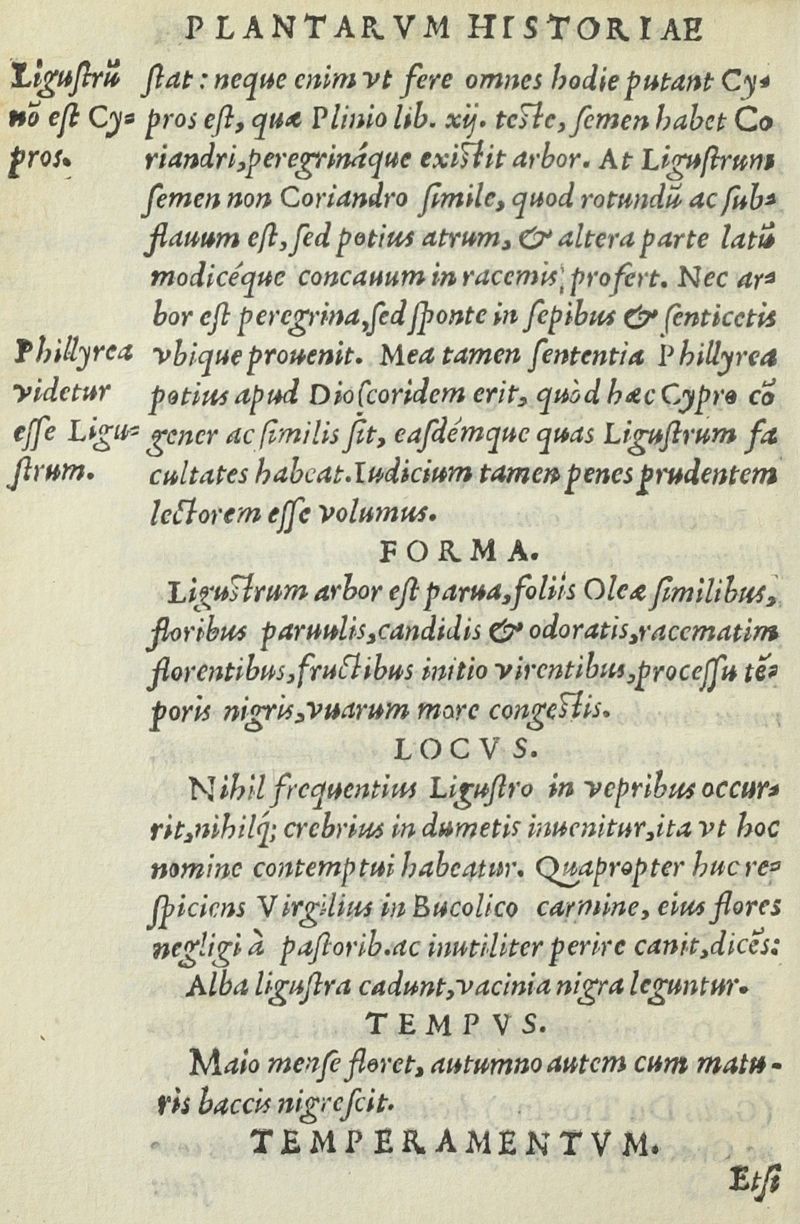 PLANTARVM HISTORIAE
Ligustrũ
nõ est Cy-
pros.
stat: neque enim vt fere omnes hodie putant Cy-
pros est, quæ Plinio lib. xij. teste, semen habet Co
riandri, peregrináque existit arbor. At Ligustrum
semen non Coriandro simile, quod rotundũ ac sub-
flauum est, sed potius atrum, & altera parte latũ
modicéque concauum in racemis profert. Nec ar-
bor est peregrina, sed sponte in sepibus & senticetis
Phillyrea
videtur
esse Ligu-
strum.
vbique prouenit. Mea tamen sententia Phillyrea
potius apud Dioscoridem erit, quòd hæc Cypro cõ
gener ac similis sit, easdémque quas Ligustrum fa
cultates habeat. Iudicium tamen penes prudentem
lectorem esse volumus.
FORMA.
Ligustrum arbor est parua, foliis Oleæ similibus,
floribus paruulis, candidis & odoratis, racematim
florentibus, fructibus initio virentibus, processu tẽ-
poris nigris, vuarum more congestis.
LOCVS.
Nihil frequentius Ligustro in vepribus occur-
rit, nihilq; crebrius in dumetis inuenitur, ita vt hoc
nomine contemptui habeatur. Quapropter huc re-
spiciens Virgilius in Bucolico carmine, eius flores
negligi à pastorib. ac inutiliter perire canit, dicẽs:
Alba ligustra cadunt, vacinia nigra leguntur.
TEMPVS.
Maio mense floret, autumno autem cum matu-
ris baccis nigrescit.
TEMPERAMENTVM.
Etsi